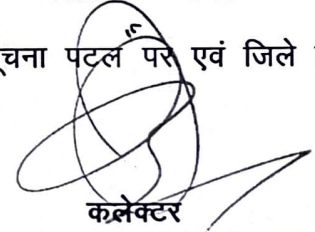 सूचना पटल पर एवं जिले
कलेक्टर